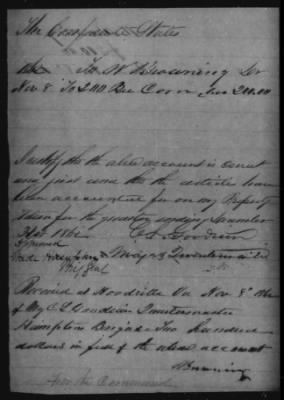 The Confederate States
To W Browning Dr
Nov 8 To 200 Bu Corn 200.00
I certify that the above account is correct
and just and that the articles have
been accounted for on my Property
for the quarter ending December
31st 1862 C L Goodwin
Approved Major & Quartermaster
Wade Hampton
Brig Genl
Received at Woodville Va Nov 8th 1862
of Maj C L Goodwin Quartermaster
Hampton Brigade Two Hundred
dollars in full of the above account
Browning